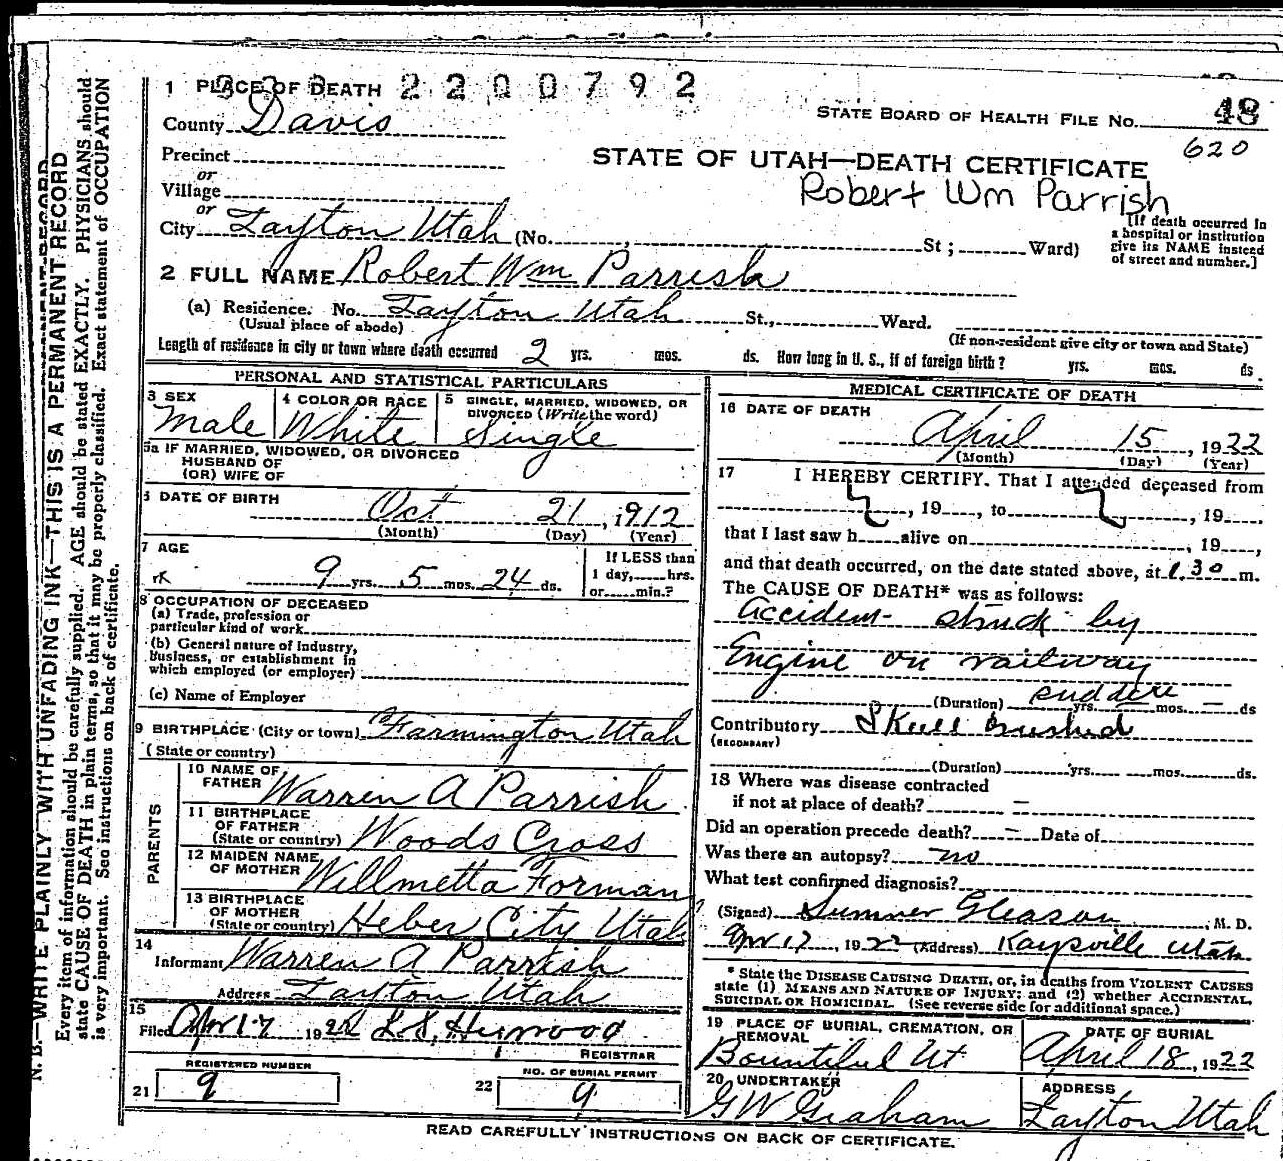 1 PLACE OF DEATH 2200792
48
STATE BOARD OF HEALTH FILE NO.
620
County Davis
Precinct
or
Village
or
City Layton Utah (No. St; Ward)
STATE OF UTAH—DEATH CERTIFICATE
Robert Wm Parrish
[If death occurred in
a hospital or institution
give its NAME instead
of street and number.]
2 FULL NAME Robert Wm Parrish
(a) Residence. No. Layton Utah St., Ward.
(Usual place of abode)
(If non-resident give city or town and State)
Length of residence in city or town where death occurred 2 yrs. mos. ds. How long in U. S., if of foreign birth? yrs. mos. ds.
PERSONAL AND STATISTICAL PARTICULARS
3 SEX
Male
4 COLOR OR RACE
White
5 SINGLE, MARRIED, WIDOWED, OR
DIVORCED (Write the word)
Single
5a IF MARRIED, WIDOWED, OR DIVORCED
HUSBAND OF
(OR) WIFE OF
6 DATE OF BIRTH
Oct 21, 1912
(Month) (Day) (Year)
7 AGE
9 yrs. 5 mos. 24 ds.
If LESS than
1 day, hrs.
or min.?
8 OCCUPATION OF DECEASED
(a) Trade, profession or
particular kind of work
(b) General nature of Industry,
Business, or establishment in
which employed (or employer)
(c) Name of Employer
9 BIRTHPLACE (City or town) Farmington Utah
(State or country)
PARENTS
10 NAME OF
FATHER Warren A Parrish
11 BIRTHPLACE
OF FATHER
(State or country) Woods Cross
12 MAIDEN NAME
OF MOTHER Willmetta Forman
13 BIRTHPLACE
OF MOTHER
(State or country) Heber City Utah
14
Informant Warren A Parrish
Address Layton Utah
15
Filed Apr 17 1922 L. S.
REGISTRAR
REGISTERED NUMBER
21 9
NO. OF BURIAL PERMIT
22 9
MEDICAL CERTIFICATE OF DEATH
16 DATE OF DEATH
April 15, 1922
(Month) (Day) (Year)
17 I HEREBY CERTIFY. That I attended deceased from
, 19, to , 19
that I last saw h alive on , 19,
and that death occurred, on the date stated above, at 1.30 m.
The CAUSE OF DEATH* was as follows:
Accident - struck by
Engine on railway
(Duration) sudden yrs. mos. — ds
Contributory Skull Crushed
(SECONDARY)
(Duration) yrs. mos. ds.
18 Where was disease contracted
if not at place of death? —
Did an operation precede death? — Date of
Was there an autopsy? no
What test confirmed diagnosis?
(Signed) Sumner Gleason, M. D.
Apr 17, 1922 (Address) Kaysville Utah
* State the DISEASE CAUSING DEATH, or, in deaths from VIOLENT CAUSES
state (1) MEANS AND NATURE OF INJURY; and (2) whether ACCIDENTAL,
SUICIDAL OR HOMICIDAL. (See reverse side for additional space.)
19 PLACE OF BURIAL, CREMATION, OR
REMOVAL
Bountiful Ut
DATE OF BURIAL
April 18, 1922
20 UNDERTAKER
G W Graham
ADDRESS
Layton Utah
READ CAREFULLY INSTRUCTIONS ON BACK OF CERTIFICATE.
N. B.—WRITE PLAINLY WITH UNFADING INK—THIS IS A PERMANENT RECORD
Every item of information should be carefully supplied. AGE should be stated EXACTLY. PHYSICIANS should
state CAUSE OF DEATH in plain terms, so that it may be properly classified. Exact statement of OCCUPATION
is very important. See instructions on back of certificate.